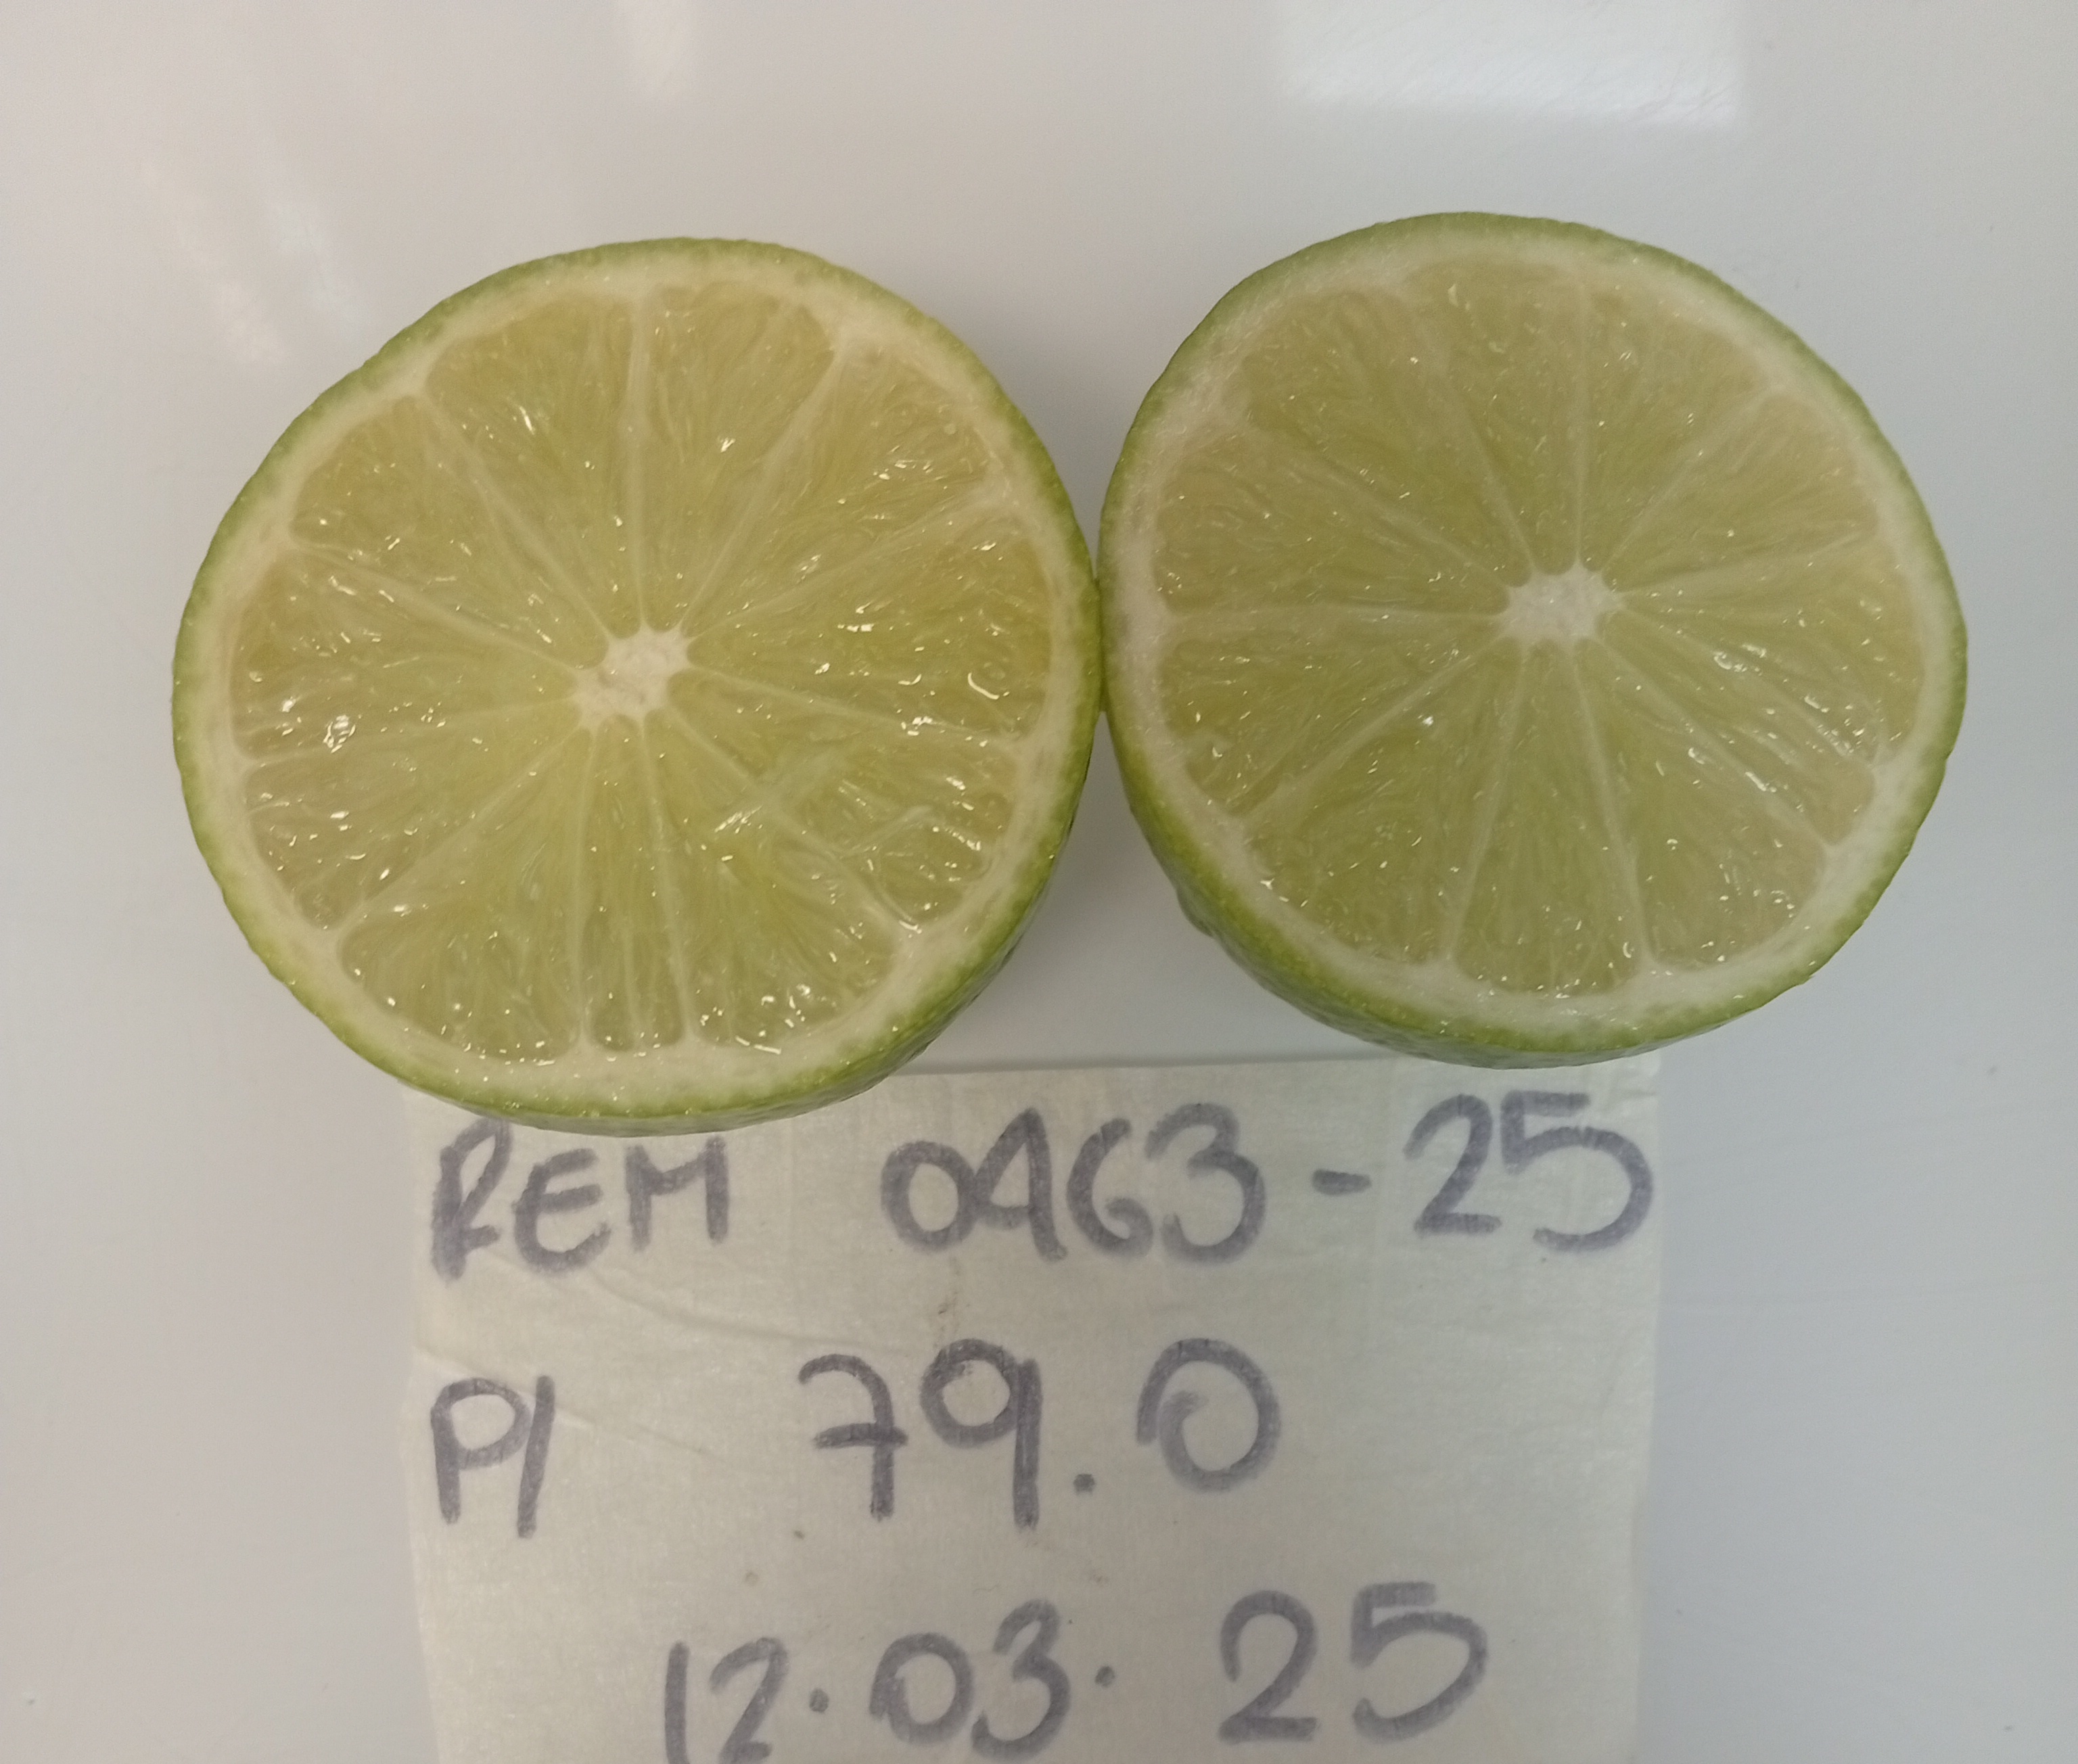 REM 0463-25
P/ 79.0
12.03.25